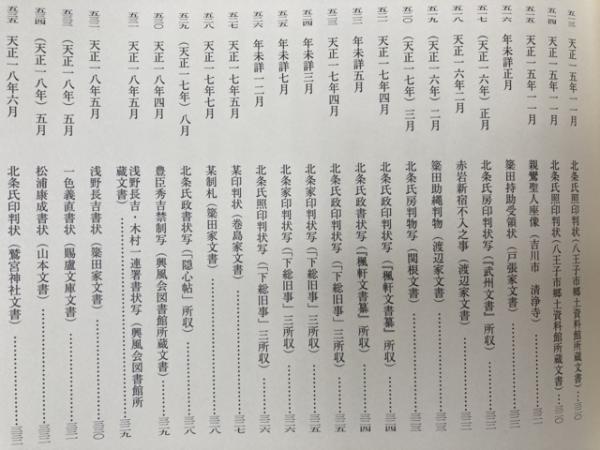 五一三 天正一五年一一月 北条氏照印判状(八王子市郷土資料館所蔵文書)…三二〇
五一四 天正一五年一一月 北条氏照印判状(八王子市郷土資料館所蔵文書)…三二〇
五一五 天正一五年一一月 親鸞聖人座像(吉川市 清浄寺)………三二一
五一六 年未詳正月 簗田持助受領状(戸張家文書)………三二一
五一七 (天正一六年)正月 北条氏房印判状写(『武州文書』所収)………三二一
五一八 天正一六年二月 赤岩新宿不入之事(渡辺家文書)………三二二
五一九 (天正一六年)二月 簗田助縄判物(渡辺家文書)………三二三
五二〇 (天正一七年)三月 北条氏房判物写(関根文書)………三二三
五二一 天正一七年四月 北条氏政印判状写(『楓軒文書纂』所収)………三二四
五二二 年未詳五月 北条氏政書状写(『楓軒文書纂』所収)………三二四
五二三 天正一七年四月 北条氏政印判状写(「下総旧事」三所収)………三二五
五二四 年未詳三月 北条家印判状写(「下総旧事」三所収)………三二五
五二五 年未詳七月 北条家印判状写(「下総旧事」三所収)………三二六
五二六 年未詳一二月 北条氏照印判状写(「下総旧事」三所収)………三二六
五二七 天正一七年五月 某印判状(巻島家文書)………三二七
五二八 天正一七年七月 某制札(簗田家文書)………三二八
五二九 (天正一七年)八月 北条氏政書状写(「隠心帖」所収)………三二八
五三〇 天正一八年四月 豊臣秀吉禁制写(興風会図書館所蔵文書)………三二八
五三一 天正一八年五月 浅野長吉・木村一連署書状写(興風会図書館所
蔵文書)………三二九
五三二 天正一八年五月 浅野長吉書状(簗田家文書)………三三〇
五三三 (天正一八年)五月 一色義直書状写(賜蘆文庫文書)………三三一
五三四 (天正一八年)五月 松浦康成書状(山本文書)………三三二
五三五 天正一八年六月 北条氏印判状(鷲宮神社文書)………三三二